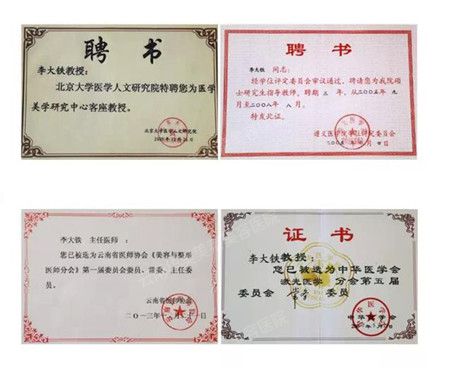 聘 书
李大铁教授：
北京大学医学人文研究院特聘您为医学
美学研究中心客座教授。
北京大学医学人文研究院
聘 书
李大铁 同志：
经学位评定委员会审议通过，聘请您为我院硕
士研究生指导教师，聘期 三 年，从2005年 9
月至2008年 8 月。
特发此证。
遵义医学院学位评定委员会
李大铁 主任医师：
您已被选为云南省医师协会《美容与整形
医师分会》第一届委员会委员、常委、主任委
员。
云南省医师协会
证 书
李大铁教授：
您已被选为中华医学会
激光医学 分会第五届
委员会 常务 委员
中华医学会